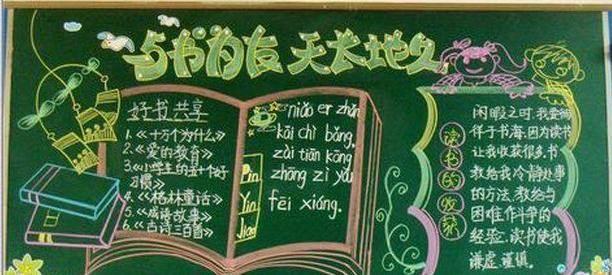 与书为友 天长地久
好书共享
1.《十万个为什么》
2.《爱的教育》
3.《小学生的五十个好
习惯》
4.《格林童话》
5.《成语故事》
6.《古诗三百首》
Pin
Yin
Jiao
niǎo er zhǎn
kāi chì bǎng.
zài tiān kōng
zhōng zì yóu
fēi xiáng.
读书的收获
闲暇之时,我爱徜
徉于书海,因为读书
让我收获很多.书
教给我冷静处事
的方法,教给与
困难作斗争的
经验.读书使我
谦虚、谨慎.